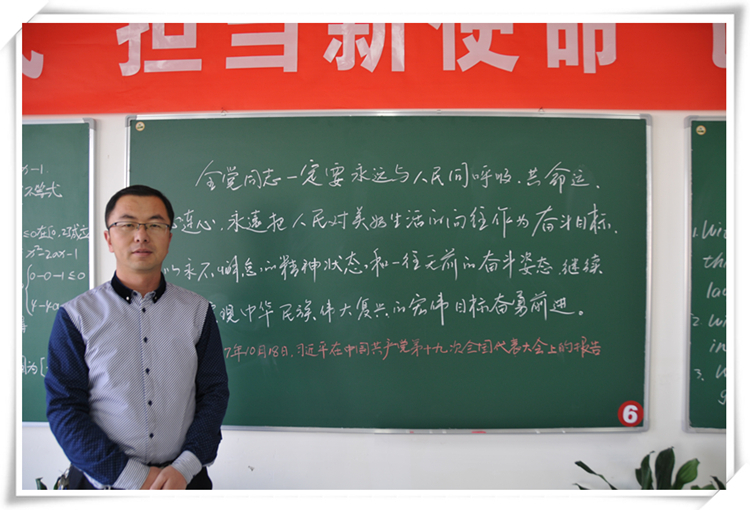 担当新使命
x-1
不等式
x²-20x-1
0-0-1≤0
全党同志一定要永远与人民同呼吸、共命运、
连心，永远把人民对美好生活的向往作为奋斗目标，
永不懈怠的精神状态和一往无前的奋斗姿态，继续
现中华民族伟大复兴的宏伟目标奋勇前进。
7年10月18日，习近平在中国共产党第十九次全国代表大会上的报告
6
1.
2.
in
3.